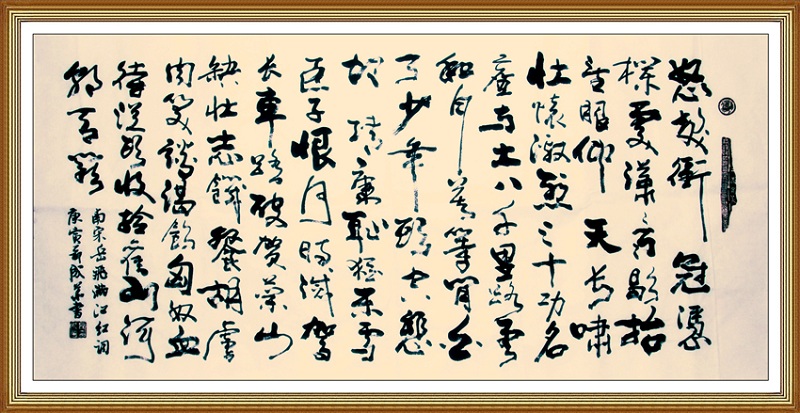 怒髮衝冠憑
欄處瀟瀟雨歇抬
望眼仰天長嘯
壯懷激烈三十功名
塵與土八千里路雲
和月莫等閒白
了少年頭空悲
切靖康恥猶未雪
臣子恨何時滅駕
長車踏破賀蘭山
缺壯志饑餐胡虜
肉笑談渴飲匈奴血
待從頭收拾舊山河
朝天闕
南宋岳飛滿江紅詞
庚寅成書